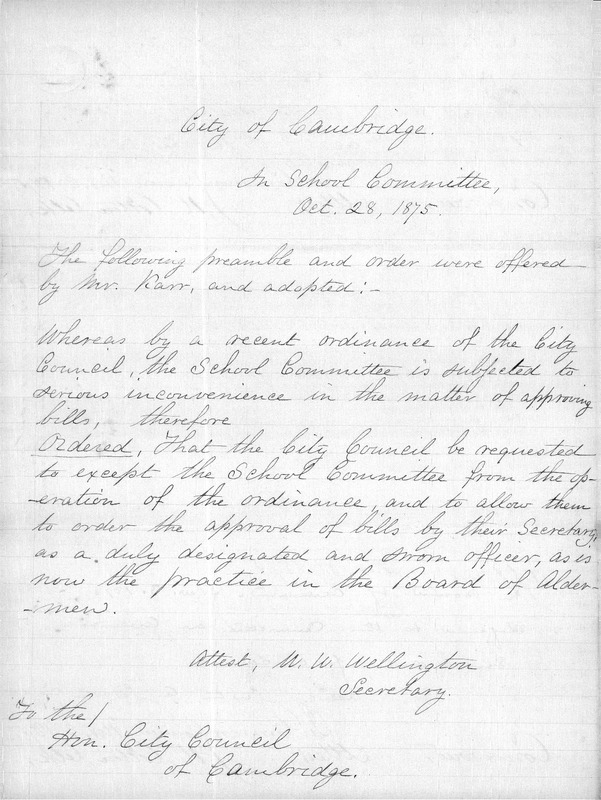 City of Cambridge.
In School Committee,
Oct. 28, 1875.
The following preamble and order were offered
by Mr. Karr, and adopted:-
Whereas by a recent ordinance of the City
Council, the School Committee is subjected to
serious inconvenience in the matter of approving
bills, therefore
Ordered, That the City Council be requested
to except the School Committee from the op-
-eration of the ordinance, and to allow them
to order the approval of bills by their Secretary,
as a duly designated and sworn officer, as is
now the practice in the Board of Alder-
-men.
Attest, W. W. Wellington
Secretary.
To the
Hon. City Council
of Cambridge.